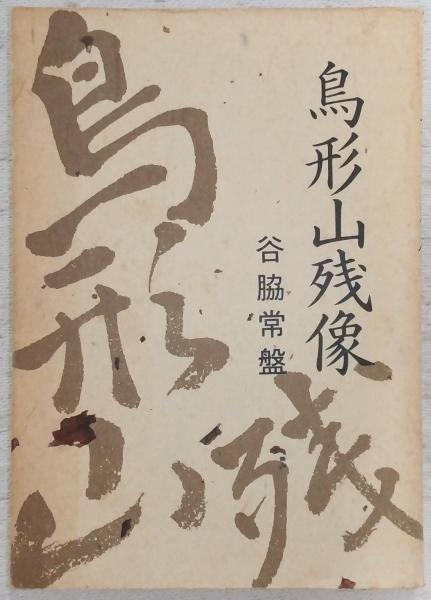 鳥形山残像
谷脇常盤
鳥形山
残像